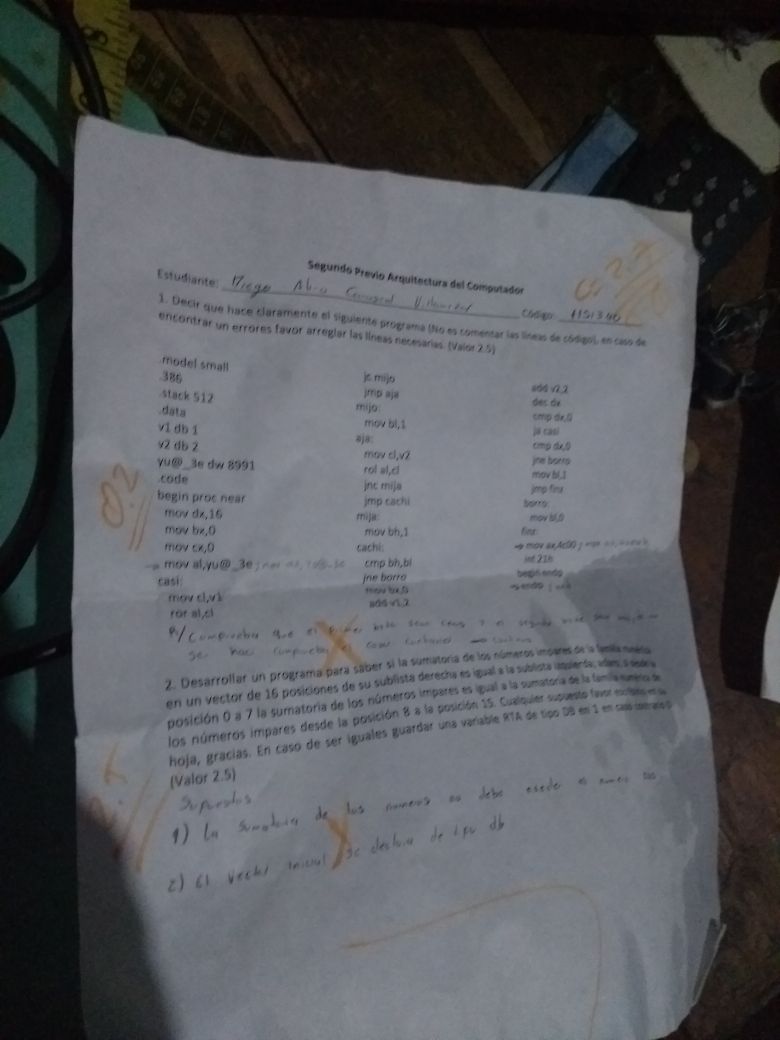 Segundo Previo Arquitectura del Computador
Estudiante: Diego Código:
1. Decir que hace claramente el siguiente programa (No es comentar las líneas de código), en caso de
encontrar un errores favor arreglar las líneas necesarias. (Valor 2.5)
.model small
.386
.stack 512
.data
v1 db 1
v2 db 2
yu@_3e dw 8991
.code
begin proc near
mov dx,16
mov bx,0
mov cx,0
mov al,yu@_3e
casi:
mov cl,v1
ror al,cl
jc mijo
jmp aja
mijo:
mov bl,1
aja:
mov cl,v2
rol al,cl
jnc mija
jmp cachi
mija:
mov bh,1
cachi:
cmp bh,bl
jne borro
mov bx,0
add v1,2
add v2,2
dec dx
cmp dx,0
ja casi
cmp dx,0
jne borro
mov bl,1
jmp finx
borro:
mov bl,0
finx:
mov ax,4c00
int 21h
begin endp
endp
R/ Comprueba que el primer
0.2
2. Desarrollar un programa para saber si la sumatoria de los números impares de la familia numérica
en un vector de 16 posiciones de su sublista derecha es igual a la sublista izquierda;
posición 0 a 7 la sumatoria de los números impares es igual a la sumatoria de la familia numérica de
los números impares desde la posición 8 a la posición 15. Cualquier supuesto favor
hoja, gracias. En caso de ser iguales guardar una variable RTA de tipo DB en 1 en caso contrario 0
(Valor 2.5)
Supuestos
1) La Sumatoria de los numeros no debe
2) El vector inicial se de tipo db